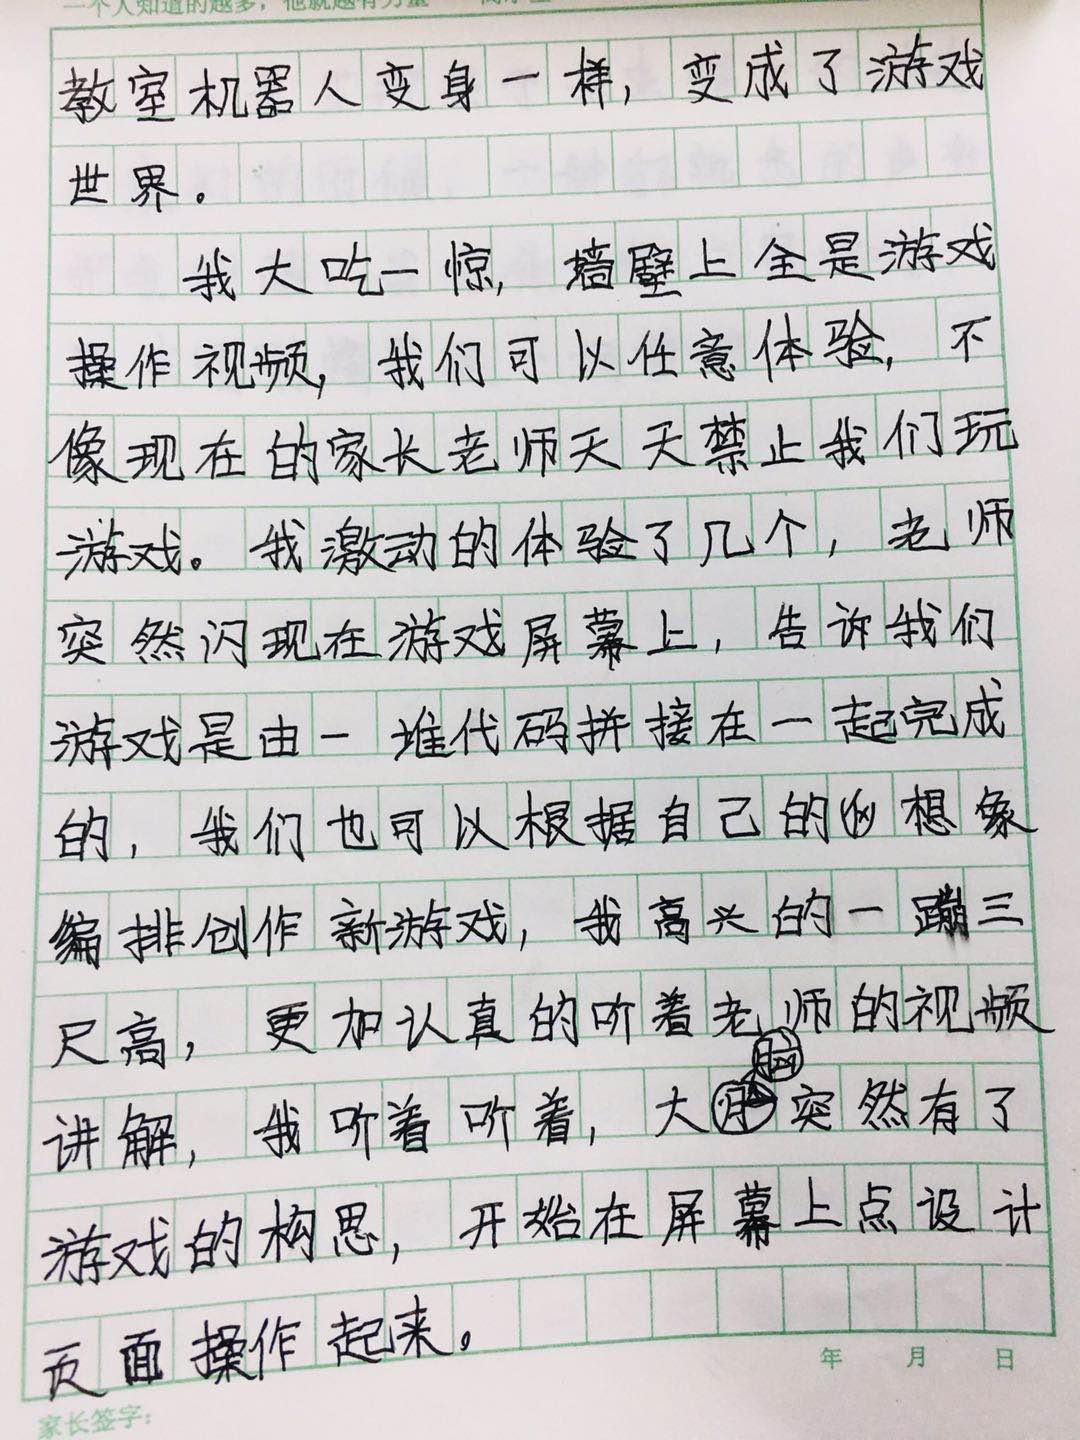 一个人知道的越多，他就越有力量
教室机器人变身一样，变成了游戏
世界。
我大吃一惊，墙壁上全是游戏
操作视频，我们可以任意体验，不
像现在的家长老师天天禁止我们玩
游戏。我激动的体验了几个，老师
突然闪现在游戏屏幕上，告诉我们
游戏是由一堆代码拼接在一起完成
的，我们也可以根据自己的想象
编排创作新游戏，我高兴的一蹦三
尺高，更加认真的听着老师的视频
讲解，我听着听着，大脑突然有了
游戏的构思，开始在屏幕上点设计
页面操作起来。
年 月 日
家长签字：